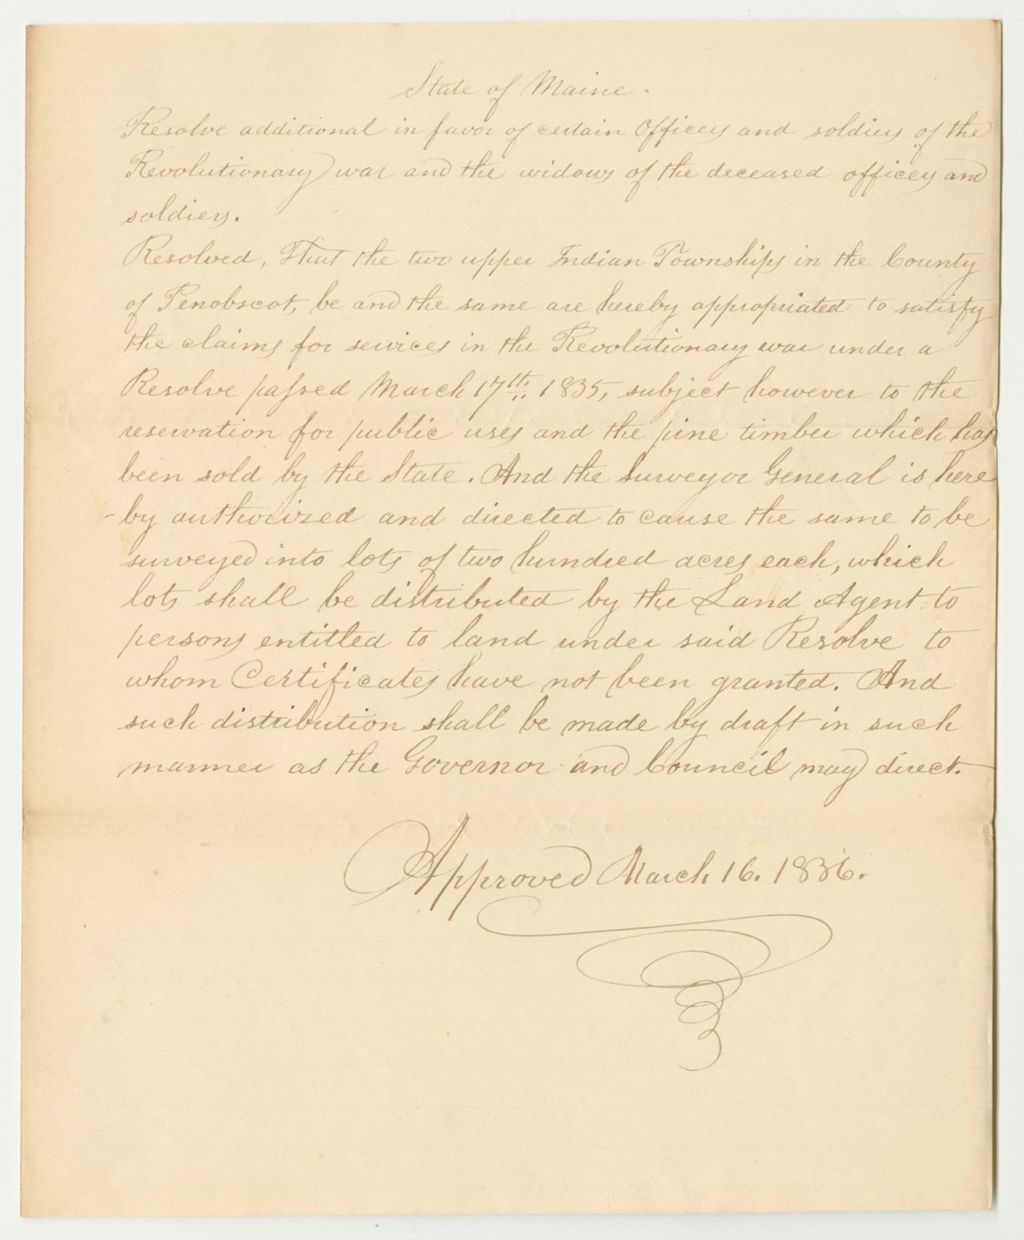 State of Maine.
Resolve additional in favor of certain Officers and soldiers of the
Revolutionary war and the widows of the deceased officers and
soldiers.
Resolved, That the two upper Indian Townships in the County
of Penobscot, be and the same are hereby appropriated to satisfy
the claims for services in the Revolutionary war under a
Resolve passed March 17th, 1835, subject however to the
reservation for public uses and the pine timber which has
been sold by the State. And the Surveyor General is here
-by authorized and directed to cause the same to be
surveyed into lots of two hundred acres each, which
lots shall be distributed by the Land Agent to
persons entitled to land under said Resolve to
whom Certificates have not been granted. And
such distribution shall be made by draft in such
manner as the Governor and Council may direct.
Approved March 16. 1836.